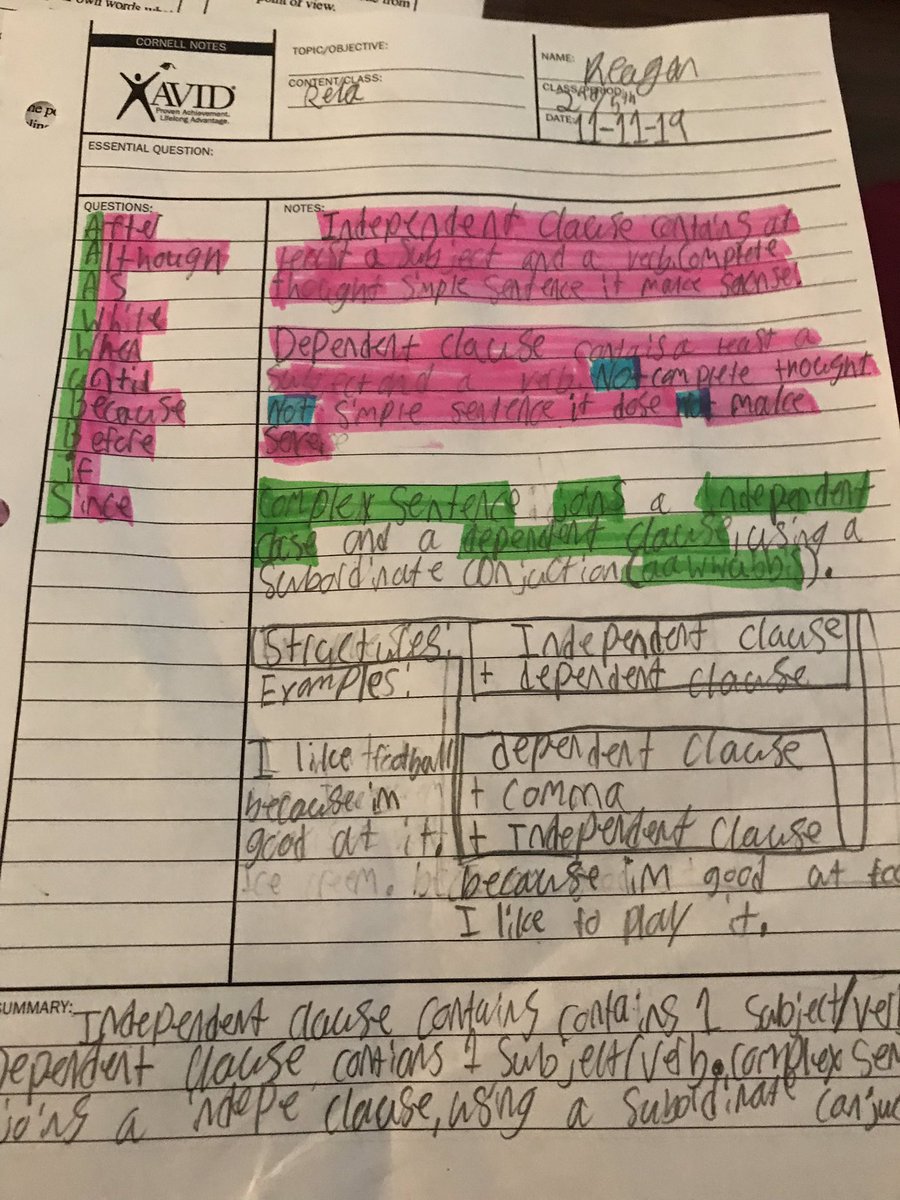 own words
point of view.
from
CORNELL NOTES
AVID
Proven Achievement.
Lifelong Advantage.
TOPIC/OBJECTIVE:
CONTENT/CLASS:
Rela
NAME: Reagan
CLASS/PERIOD:
DATE: 11-11-19
ESSENTIAL QUESTION:
QUESTIONS:
After
Although
AS
While
When
until
Because
Before
if
Since
NOTES:
Independent Clause contains at
least a subject and a verb. Complete
thought simple sentence it make sense.
Dependent clause contais a least a
subject and a verb. Not complete thought
Not simple sentence it dose not make
sense
Complex sentence joins a independent
clase and a dependent clause, using a
subordinate conjuction (aawwubbis).
Structures: Independent clause
+ dependent clause
Examples:
I like football
because im
good at it.
dependent clause
+ comma
+ Independent Clause
because im good at
I like to play it.
SUMMARY: Independent clause contains contains 1 subject/
Dependent clause contians 1 subject/verb. complex
joins a indepe clause, using a subordinate